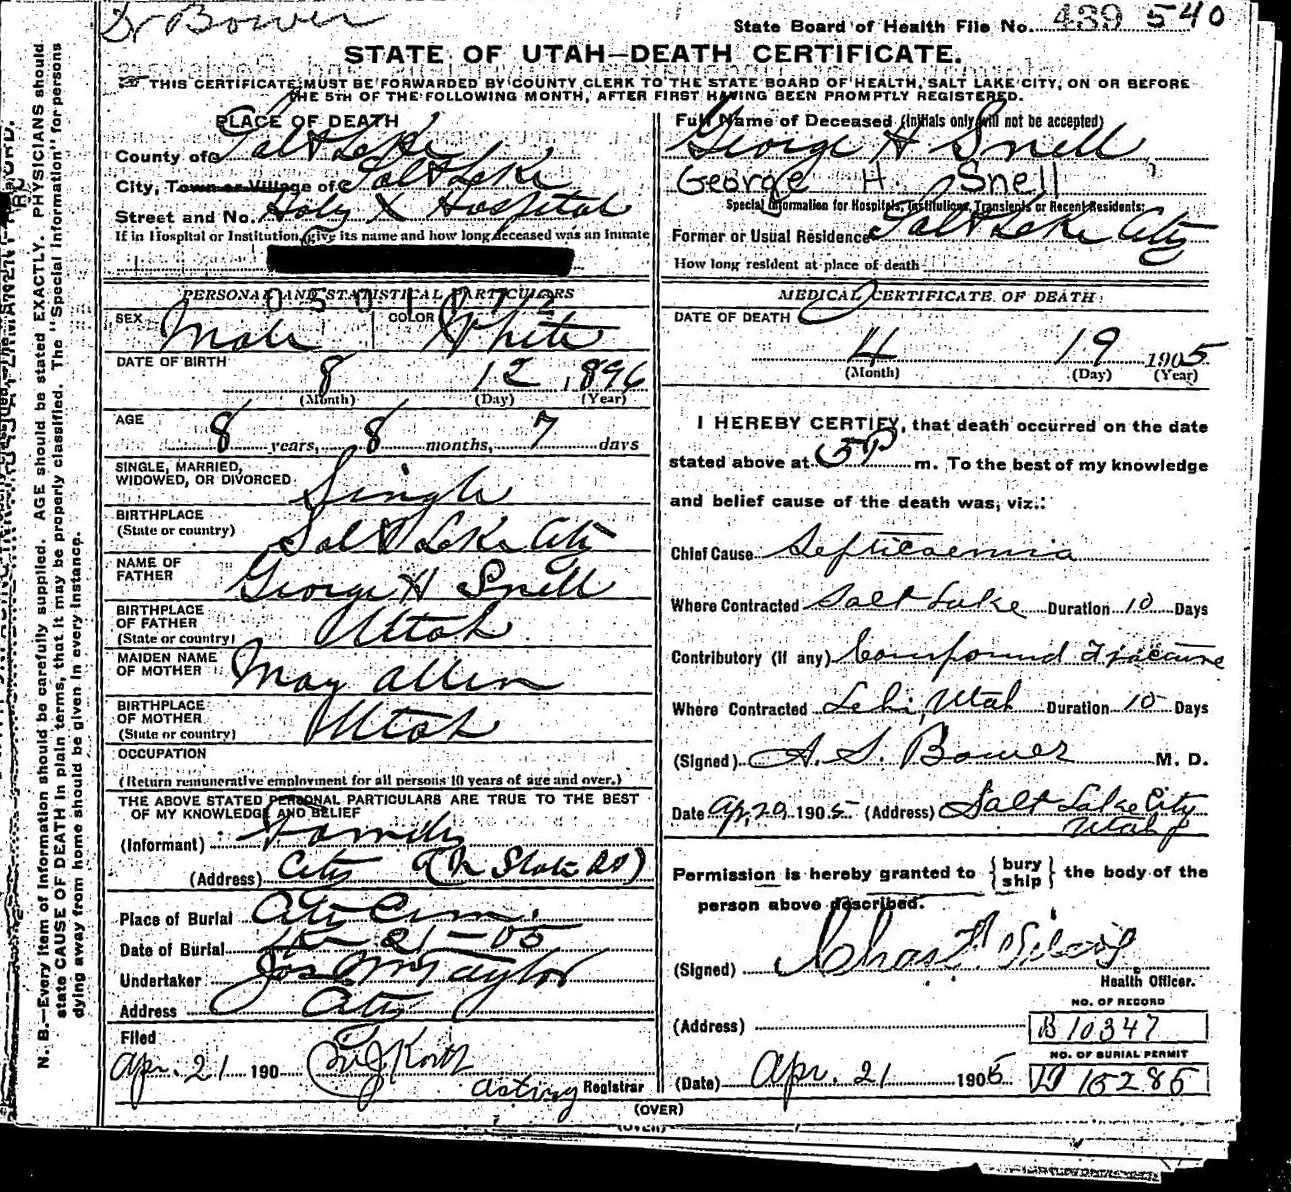 Dr Bower
State Board of Health File No. 439 540
STATE OF UTAH—DEATH CERTIFICATE.
THIS CERTIFICATE MUST BE FORWARDED BY COUNTY CLERK TO THE STATE BOARD OF HEALTH, SALT LAKE CITY, ON OR BEFORE
THE 5TH OF THE FOLLOWING MONTH, AFTER FIRST HAVING BEEN PROMPTLY REGISTERED.
PLACE OF DEATH
County of Salt Lake
City, Town or Village of Salt Lake
Street and No. Holy X Hospital
If in Hospital or Institution, give its name and how long deceased was an inmate
PERSONAL AND STATISTICAL PARTICULARS
SEX Male COLOR White
DATE OF BIRTH
8 12 1896
(Month) (Day) (Year)
AGE
8 years, 8 months, 7 days
SINGLE, MARRIED,
WIDOWED, OR DIVORCED Single
BIRTHPLACE
(State or country) Salt Lake City
NAME OF
FATHER George H Snell
BIRTHPLACE
OF FATHER
(State or country) Utah
MAIDEN NAME
OF MOTHER May Allen
BIRTHPLACE
OF MOTHER
(State or country) Utah
OCCUPATION
(Return remunerative employment for all persons 10 years of age and over.)
THE ABOVE STATED PERSONAL PARTICULARS ARE TRUE TO THE BEST
OF MY KNOWLEDGE AND BELIEF
(Informant) Family
(Address) City
Place of Burial City Cem.
Date of Burial 21-05
Undertaker Jos Wm Taylor
Address City
Filed
Apr. 21 190
Acting Registrar
Full Name of Deceased (Initials only will not be accepted)
George H Snell
George H. Snell
Special Information for Hospitals, Institutions, Transients or Recent Residents:
Former or Usual Residence Salt Lake City
How long resident at place of death
MEDICAL CERTIFICATE OF DEATH
DATE OF DEATH
4 19 1905
(Month) (Day) (Year)
I HEREBY CERTIFY, that death occurred on the date
stated above at 5 P m. To the best of my knowledge
and belief cause of the death was, viz.:
Chief Cause Septicaemia
Where Contracted Salt Lake Duration 10 Days
Contributory (if any) Compound Fracture
Where Contracted Lehi, Utah Duration 10 Days
(Signed) A. S. Bower M. D.
Date Apr 20 1905 (Address) Salt Lake City
Utah
Permission is hereby granted to { bury ship } the body of the
person above described.
(Signed)
Health Officer.
NO. OF RECORD
(Address) B 10347
NO. OF BURIAL PERMIT
(Date) Apr. 21 1905 15285
(OVER)
N. B.—Every item of information should be carefully supplied. AGE should be stated EXACTLY. PHYSICIANS should
state CAUSE OF DEATH in plain terms, that it may be properly classified. The "Special Information" for persons
dying away from home should be given in every instance.